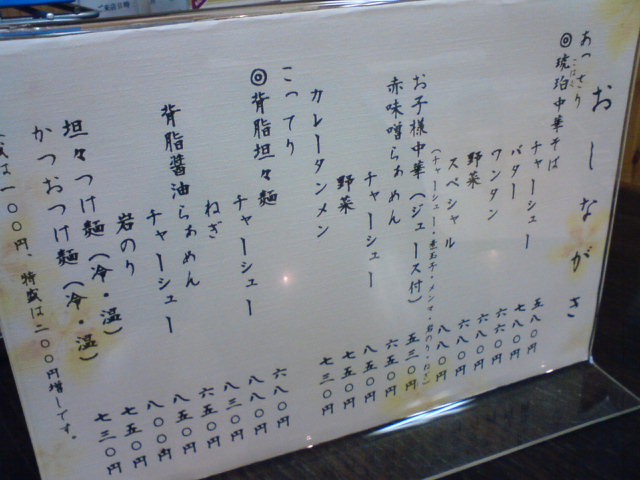 おしながき
あっさり
◎琥珀中華そば 五八〇円
こはく
チャーシュー 七八〇円
バター
ワンタン 六八〇円
野菜 六八〇円
スペシャル 八八〇円
(チャーシュー・煮玉子・メンマ・岩のり・ねぎ)
お子様中華(ジュース付) 五三〇円
赤味噌らぁめん 六五〇円
チャーシュー 八五〇円
野菜 七五〇円
カレータンメン 七三〇円
こってり
◎背脂坦々麺 六八〇円
チャーシュー 八八〇円
ねぎ 八三〇円
背脂醤油らぁめん 六五〇円
チャーシュー 八五〇円
岩のり 八〇〇円
坦々つけ麺(冷・温) 七五〇円
かつおつけ麺(冷・温) 七三〇円
は一〇〇円、特盛は二〇〇円増しです。